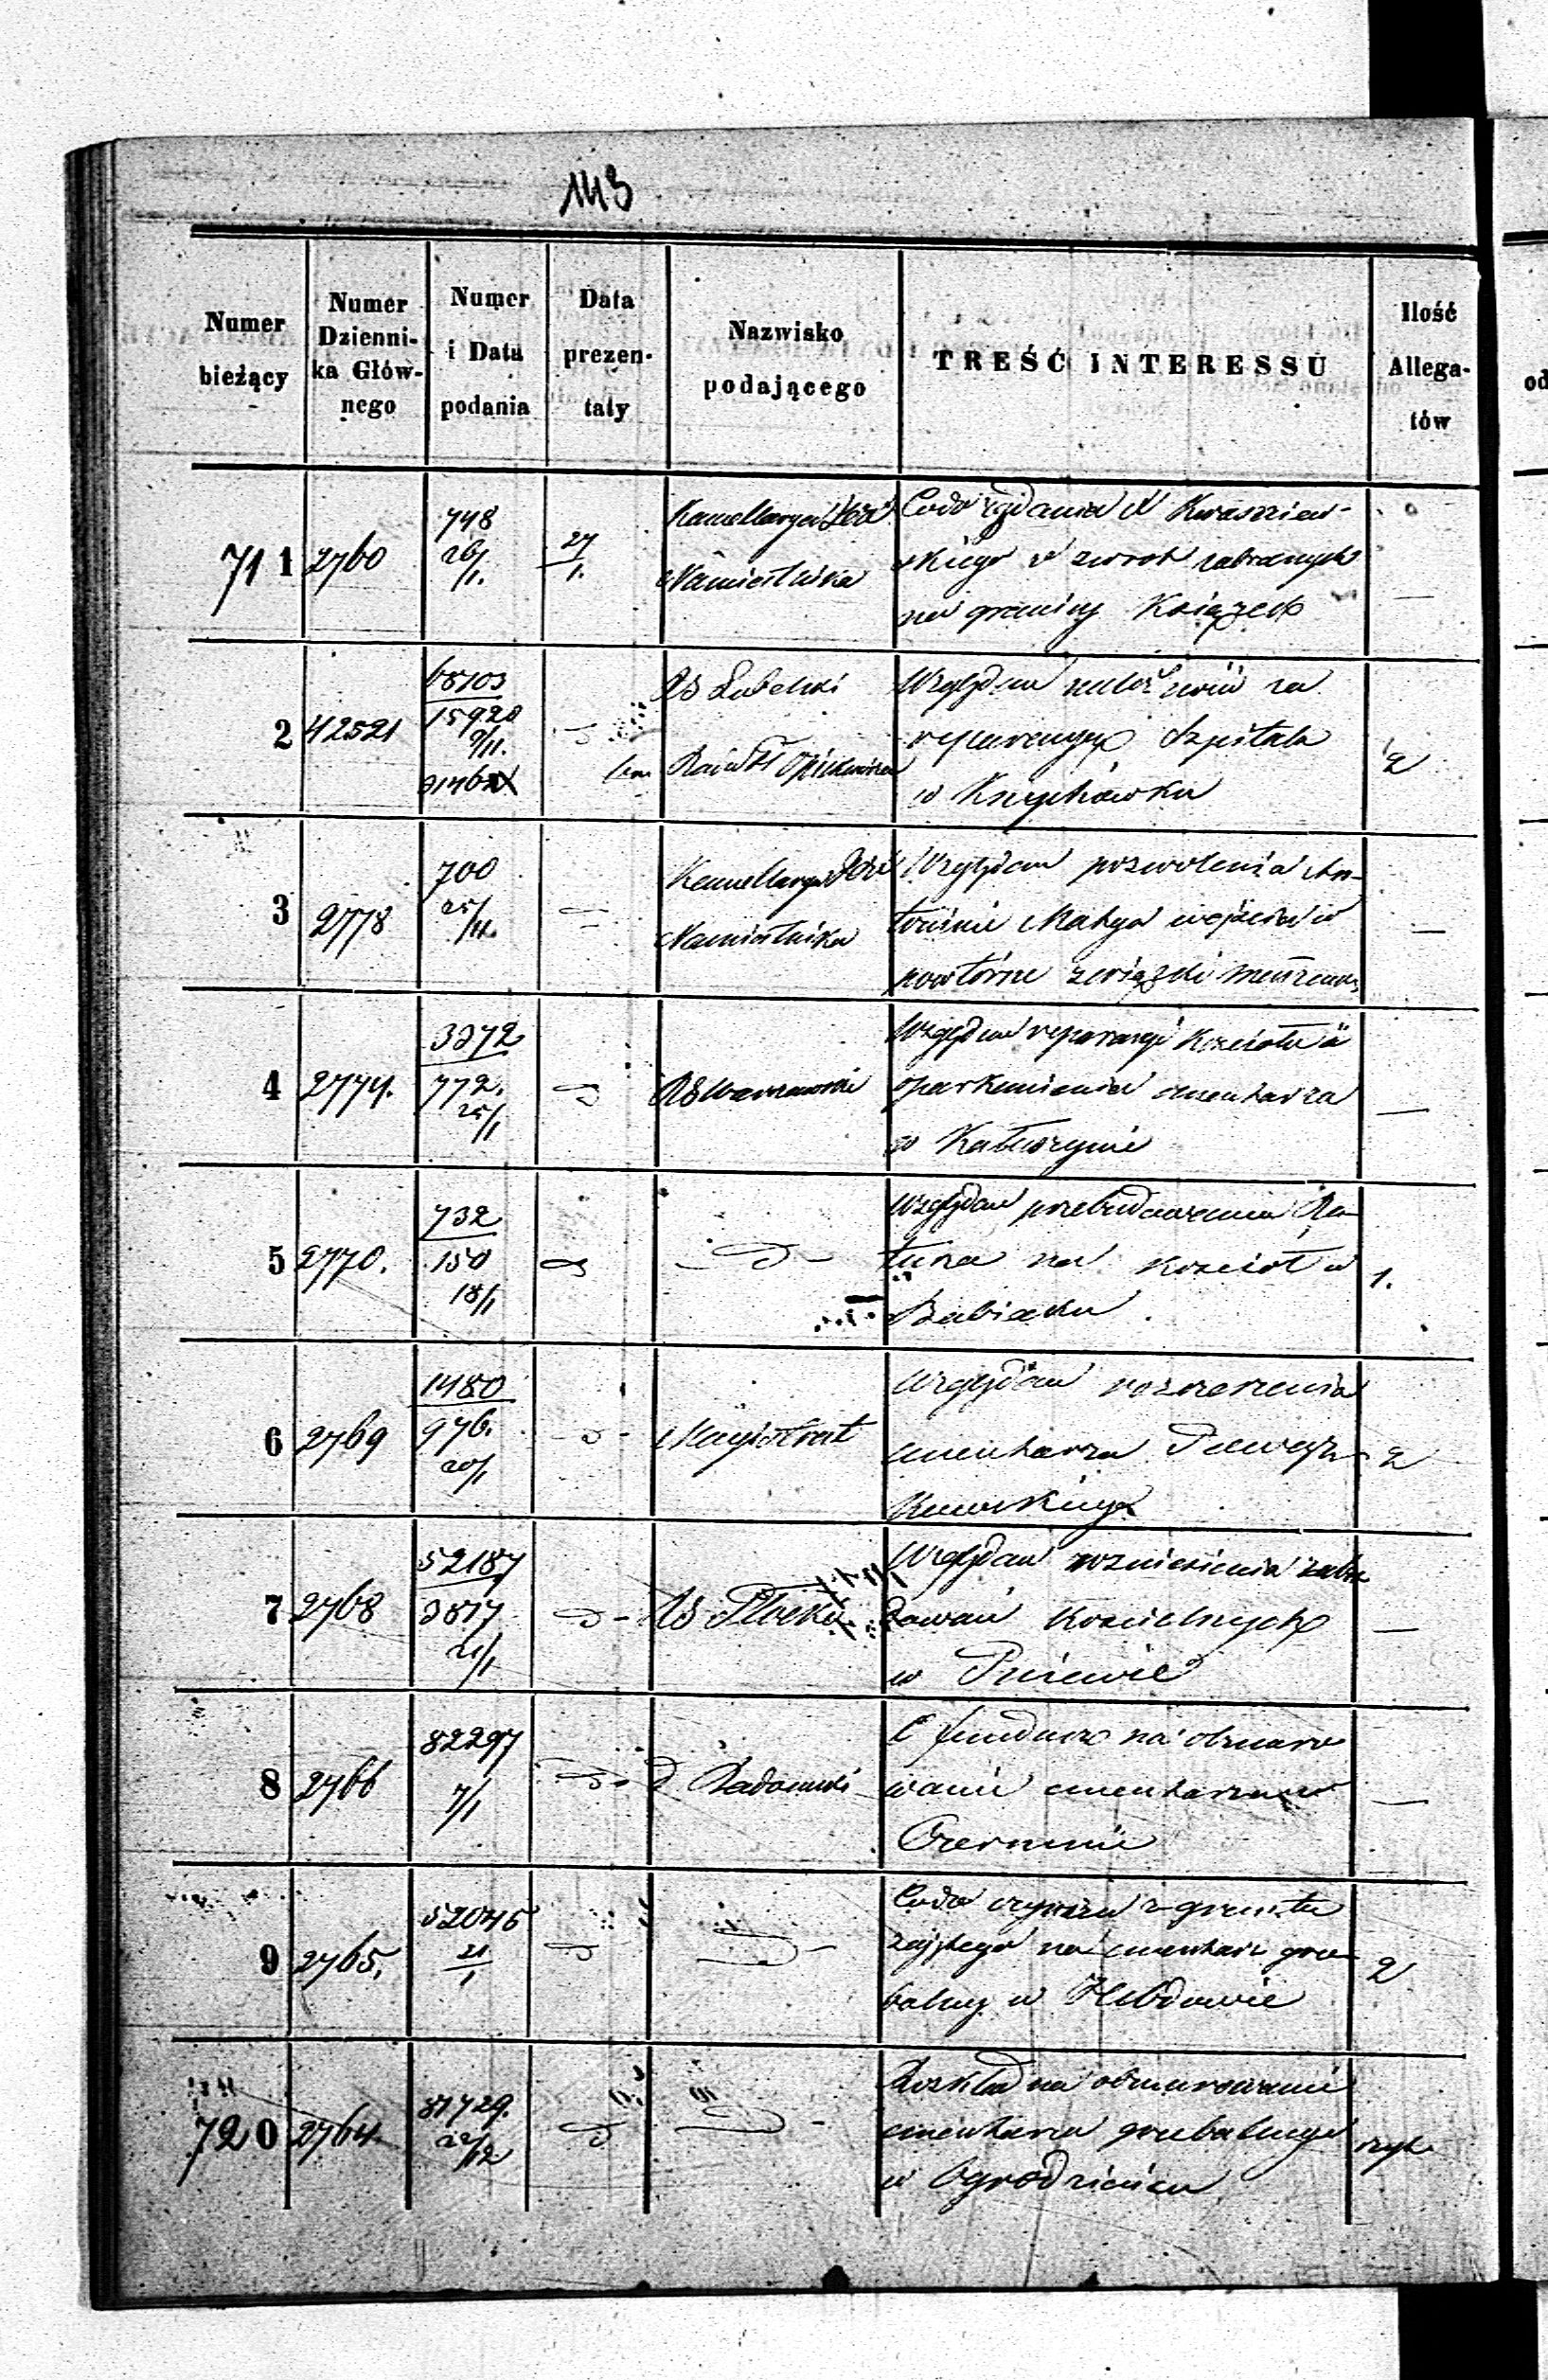 143
Numer bieżący
Numer Dzienni-ka Głów-nego
Numer i Data podania
Data prezen-taty
Nazwisko podającego
TREŚĆ INTERESSU
Ilość Allega-tów
711 2760 748 26/1. 27/1. Kancellarya
Namiestnika
Codo żądania Kwaszniew-
skiego o zwrot zabranych
na granicy Książek
2 42521 68103 15920 9/11.
Rs Lubelski
Względem należności za
reparacyę Szpitala
w
2
3 2778 700 25/11.
Kancellarya
Namiestnika
Względem pozwolenia An-
toninie wejścia w
powtórne związki
—
4 2774. 3372 772. 25/1
RS Warszawski
Względem reparacyi Kościoła i
oparkanienia cmentarza
w Kałuszynie
—
5 2770. 732 150 18/1
Względem przebudowania Ra-
tusza na kościół w
Babiaku
1.
6 2769 1480 976. 20/1
Magistrat
Względem rozszerzenia
cmentarza Powąz-
kowskiego
2
7 2768 52187 3817 21/1
RS Płocki
Względem wzniesienia zabu
dowań Kościelnych
w Pniewie
—
8 2766 82297 7/1
d Radomski
O fundusz na obmuro
wanie cmentarza w
Czerminie
—
9 2765. 52046 21/1
Codo czynszu z gruntu
zajętego na cmentarz grze
balny w Hebdowie
2
720 2764 81729. 22/12
Rozkład na obmurowanie
cmentarza grzebalnego
w Ogrodzieńcu